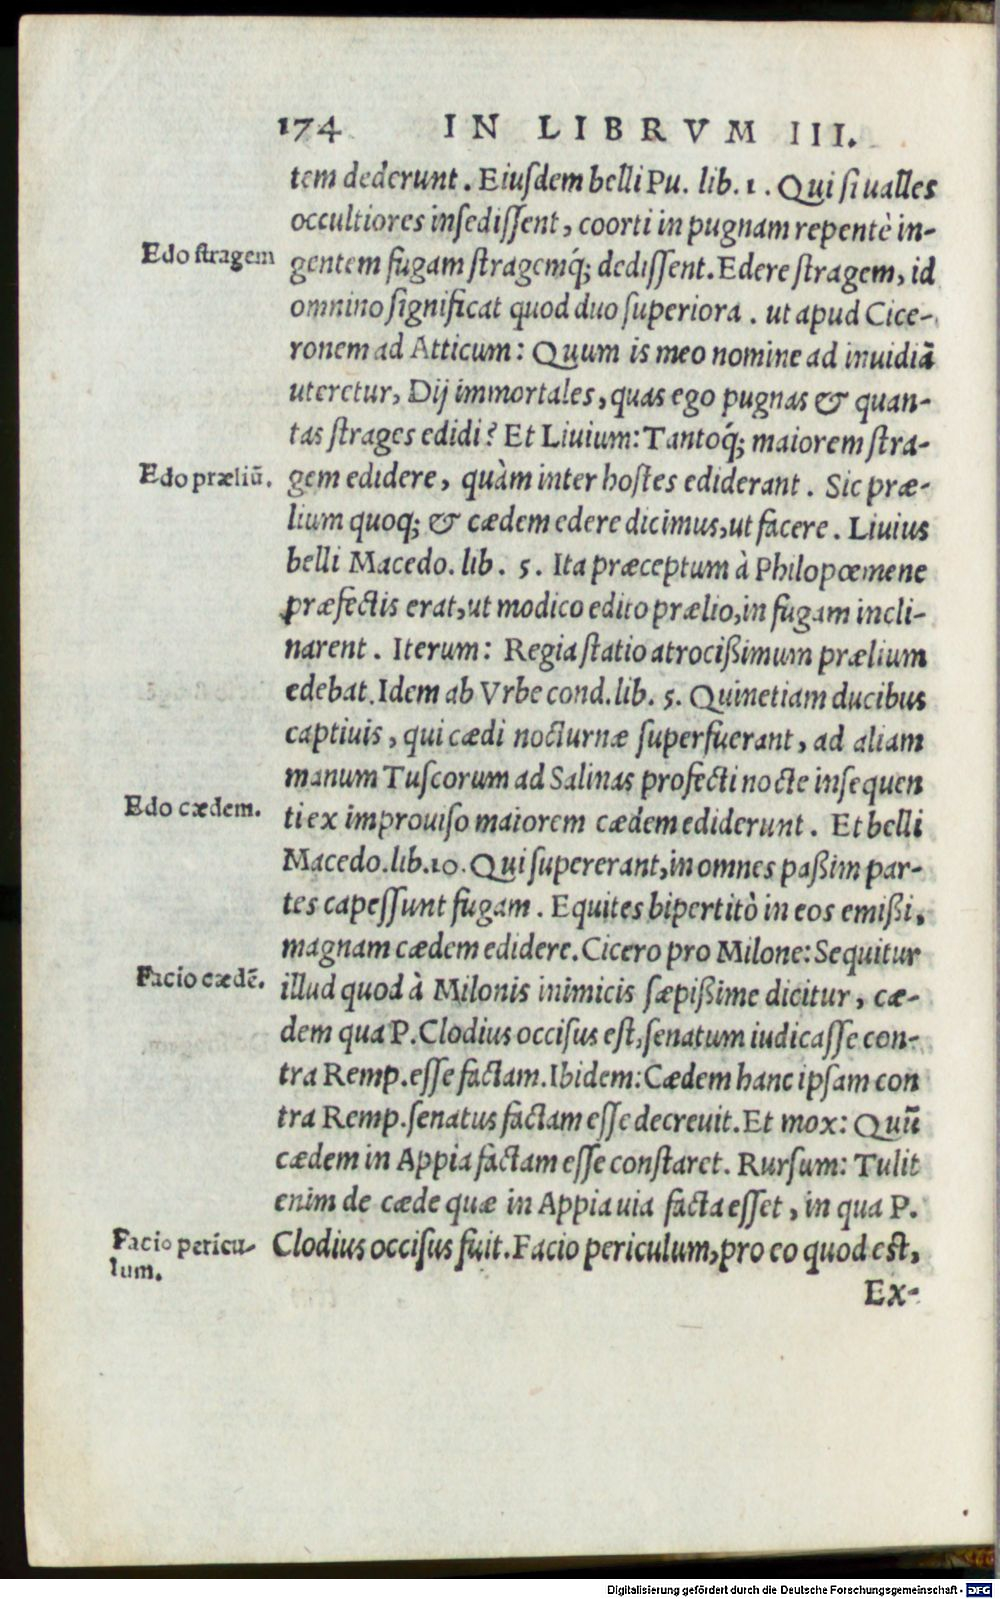 174 IN LIBRVM III.
tem dederunt. Eiuſdem belli Pu. lib. 1. Qui ſi ualles
occultiores inſediſſent, coorti in pugnam repentè in-
Edo ſtragem
gentem fugam ſtragemq́; dediſſent. Edere ſtragem, id
omnino ſignificat quod duo ſuperiora. ut apud Cice-
ronem ad Atticum: Quum is meo nomine ad inuidiã
uteretur, Dij immortales, quas ego pugnas & quan-
tas ſtrages edidi? Et Liuium: Tantoq́; maiorem ſtra-
Edo præliũ.
gem edidere, quàm inter hoſtes ediderant. Sic præ-
lium quoq; & cædem edere dicimus, ut facere. Liuius
belli Macedo. lib. 5. Ita præceptum à Philopœmene
præfectis erat, ut modico edito prælio, in fugam incli-
narent. Iterum: Regia ſtatio atrocißimum prælium
edebat. Idem ab Vrbe cond. lib. 5. Quinetiam ducibus
captiuis, qui cædi nocturnæ ſuperfuerant, ad aliam
manum Tuſcorum ad Salinas profecti nocte inſequen
Edo cædem.
ti ex improuiſo maiorem cædem ediderunt. Et belli
Macedo. lib. 10. Qui ſupererant, in omnes paßim par-
tes capeſſunt fugam. Equites bipertitò in eos emißi,
magnam cædem edidere. Cicero pro Milone: Sequitur
Facio cædẽ.
illud quod à Milonis inimicis ſæpißime dicitur, cæ-
dem qua P. Clodius occiſus eſt, ſenatum iudicaſſe con-
tra Remp. eſſe factam. Ibidem: Cædem hanc ipſam con
tra Remp. ſenatus factam eſſe decreuit. Et mox: Quũ
cædem in Appia factam eſſe conſtaret. Rurſum: Tulit
enim de cæde quæ in Appia uia facta eſſet, in qua P.
Facio pericu-
lum.
Clodius occiſus fuit. Facio periculum, pro eo quod eſt,
Ex-
Digitalisierung gefördert durch die Deutsche Forschungsgemeinschaft - DFG